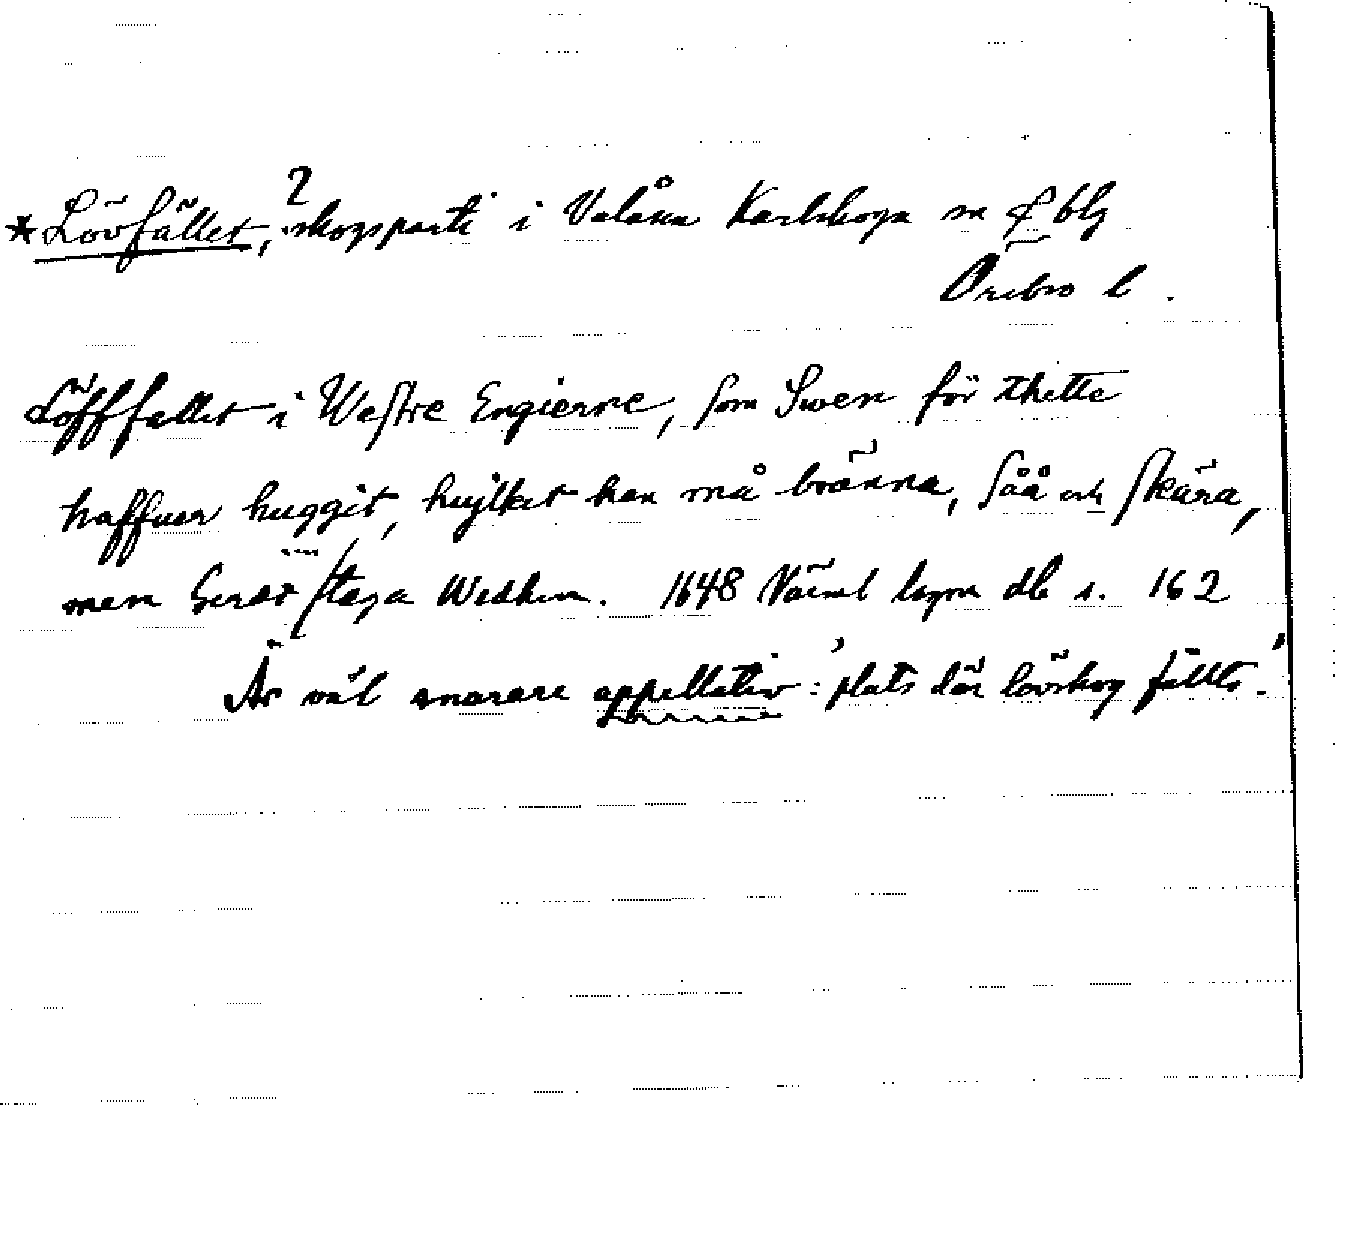 *Lövfället, ? skogsparti i Valåsen Karlskoga sn & blg
Örebro l.
Löfffallet i Westre Engierne, som Swen för thette
haffuer huggit, huylket han må bränna, såå och skära,
men Gerdzstaga Wedhen. 1648 Värml lagm db s. 162
Är väl snarare appellativ: 'plats där lövskog fällts.'